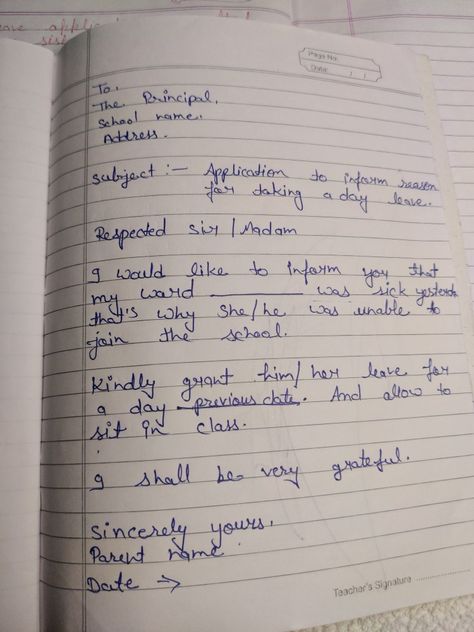 Page No.
Date: / /
To,
The Principal,
School name.
Address.
Subject :- Application to inform reason
for taking a day leave.
Respected Sir / Madam
I would like to inform you that
my ward ________ was sick yesterday
that's why She/he was unable to
join the school.
Kindly grant him/her leave for
a day previous date. And allow to
sit in class.
I shall be very grateful.
Sincerely yours.
Parent name
Date →
Teacher's Signature